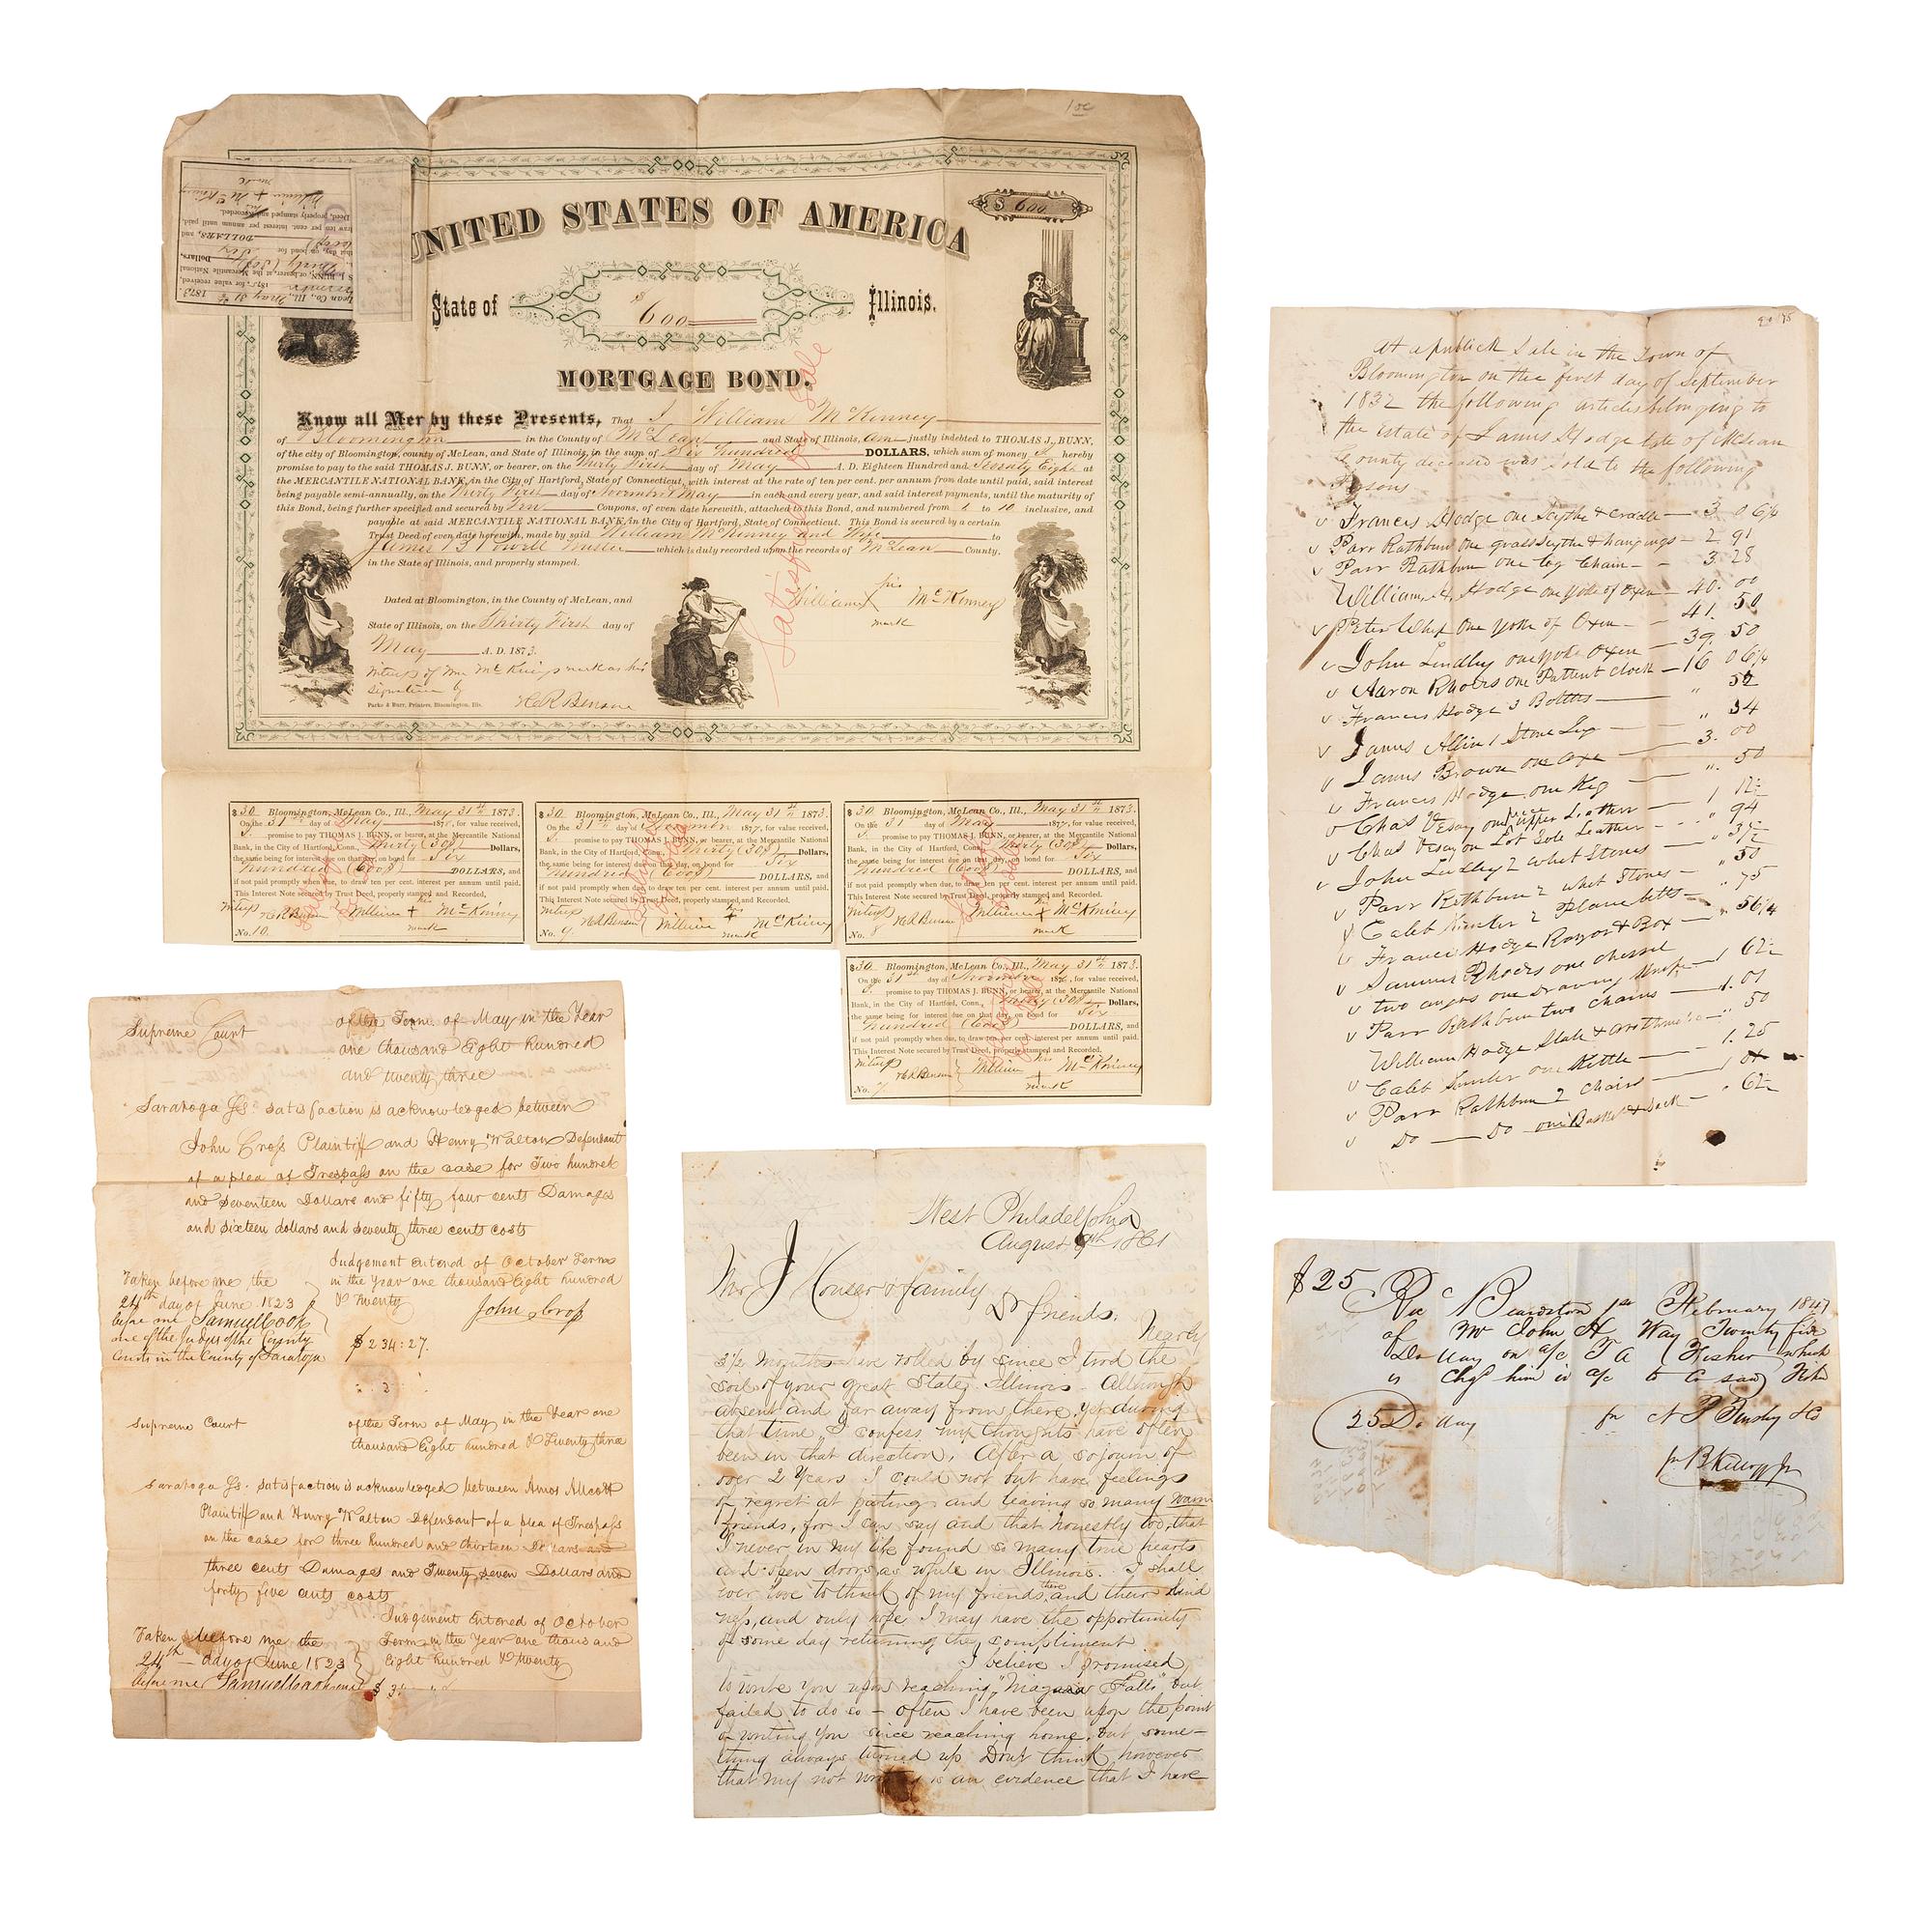 1 00
UNITED STATES OF AMERICA
$ 600
State of $600 Illinois.
MORTGAGE BOND.
Know all Men by these Presents, That I William McKinney
of Bloomington in the County of McLean and State of Illinois, am justly indebted to THOMAS J. BUNN,
of the city of Bloomington, county of McLean, and State of Illinois, in the sum of Six hundred DOLLARS, which sum of money I hereby
promise to pay to the said THOMAS J. BUNN, or bearer, on the Thirty First day of May A. D. Eighteen Hundred and Seventy Eight at
the MERCANTILE NATIONAL BANK, in the City of Hartford, State of Connecticut, with interest at the rate of ten per cent. per annum from date until paid, said interest
being payable semi-annually, on the Thirty First day of November & May in each and every year, and said interest payments, until the maturity of
this Bond, being further specified and secured by Ten Coupons, of even date herewith, attached to this Bond, and numbered from 1 to 10 inclusive, and
payable at said MERCANTILE NATIONAL BANK, in the City of Hartford, State of Connecticut. This Bond is secured by a certain
Trust Deed of even date herewith, made by said William McKinney and Wife to
James B. Powell Trustee which is duly recorded upon the records of McLean County,
in the State of Illinois, and properly stamped.
Dated at Bloomington, in the County of McLean, and
State of Illinois, on the Thirty First day of
May A. D. 1873.
William X McKinney
his
mark
Witness of Wm McKinneys mark as his
signature by
H R Benson
Parke & Burr, Printers, Bloomington, Ills.
Satisfied by Sale
$30 Bloomington, McLean Co., Ill., May 31st 1873.
On the 31st day of May 187, for value received,
I promise to pay THOMAS J. BUNN, or bearer, at the Mercantile National
Bank, in the City of Hartford, Conn., Thirty (30$) Dollars,
the same being for interest due on that day, on bond for Six
hundred (600$) DOLLARS, and
if not paid promptly when due, to draw ten per cent. interest per annum until paid.
This Interest Note secured by Trust Deed, properly stamped and Recorded.
Witness H R Benson William + McKinney
his
mark
No. 10.
$30 Bloomington, McLean Co., Ill., May 31st 1873.
On the 31st day of November 187, for value received,
I promise to pay THOMAS J. BUNN, or bearer, at the Mercantile National
Bank, in the City of Hartford, Conn., Thirty (30$) Dollars,
the same being for interest due on that day, on bond for Six
hundred (600$) DOLLARS, and
if not paid promptly when due, to draw ten per cent. interest per annum until paid.
This Interest Note secured by Trust Deed, properly stamped and Recorded.
Witness H R Benson William + McKinney
his
mark
No. 9
$30 Bloomington, McLean Co., Ill., May 31st 1873.
On the 31 day of May 187, for value received,
I promise to pay THOMAS J. BUNN, or bearer, at the Mercantile National
Bank, in the City of Hartford, Conn., Thirty (30$) Dollars,
the same being for interest due on that day, on bond for Six
hundred (600$) DOLLARS, and
if not paid promptly when due, to draw ten per cent. interest per annum until paid.
This Interest Note secured by Trust Deed, properly stamped and Recorded.
Witness H R Benson William + McKinney
his
mark
No. 8
$30 Bloomington, McLean Co., Ill., May 31st 1873.
On the 31st day of November 187, for value received,
I promise to pay THOMAS J. BUNN, or bearer, at the Mercantile National
Bank, in the City of Hartford, Conn., Thirty (30$) Dollars,
the same being for interest due on that day, on bond for Six
hundred (600$) DOLLARS, and
if not paid promptly when due, to draw ten per cent. interest per annum until paid.
This Interest Note secured by Trust Deed, properly stamped and Recorded.
Witness H R Benson William + McKinney
his
mark
No. 7
At a publick Sale in the Town of
Bloomington on the first day of September
1832 the following articles belonging to
the Estate of James Hodge late of McLean
County deceased was Sold to the following
Persons
Frances Hodge one Scythe & cradle 3 06 1/4
Parr Rathbun one grass Scythe & hangings 2 91
Parr Rathbun one log Chain 3 28
William H. Hodge one Yoke of Oxen 40. 00
Peter Whip one yoke of Oxen 41. 50
John Lindley one yoke Oxen 39. 50
Aaron Rhodes one Pattent clock 16 06 1/4
Frances Hodge 3 Bottles " 52
James Allin 1 Stone Jug " 34
James Brown one axe 3. 00
Frances Hodge one Keg " 50
Chas Vesay one piece upper Leather 1 12
Chas Vesay on Lot Sole Leather 94
John Lindley 2 whet Stones " 37
Parr Rathbun 2 whet Stones " 50
Caleb 2 Plane bitts " 75
Frances Hodge Rayor & Box " 56 1/4
Samuel Rhodes one chessel
two augers one Drawing Knife 1 62
Parr Rathbun two chains 1.01
William Hodge Slate & arethmetic " 50
Caleb one Kettle 1. 25
Parr Rathbun 2 chairs 1
Do Do one Basket & Sack " 62
Supreme Court of the Term of May in the Year
one thousand Eight hundred
and twenty three
Saratoga Ss. Satisfaction is acknowledged between
John Cross Plaintiff and Henry Walton Defendant
of a plea of Trespass on the case for Two hundred
and seventeen Dollars and fifty four cents Damages
and sixteen dollars and seventy three cents costs
Judgement entered of October Term
in the Year one thousand Eight hundred
& twenty
John Cross
Taken before me the
24th day of June 1823
before me Samuel Cook
one of the Judges of the County
Courts in the County of Saratoga
$234:27.
Supreme Court of the Term of May in the Year one
thousand Eight hundred & Twenty three
Saratoga Ss. Satisfaction is acknowledged between Amos Allcott
Plaintiff and Henry Walton Defendant of a plea of Trespass
on the case for three hundred and thirteen Dollars and
three cents Damages and Twenty seven Dollars and
forty five cents costs
Judgement entered of October
Term in the Year one thousand
Eight hundred & twenty
Taken before me the
24th day of June 1823
before me Samuel Cook
West Philadelphia
August 9th 1861
Mr J Houser & family
Dr friends.
Nearly
3 1/2 Months have rolled by since I trod the
soil of your great State, Illinois. Although
absent and far away from there, yet during
that time, I confess, my thoughts have often
been in that direction. After a sojourn of
over 2 Years I could not but have feelings
of regret at parting and leaving so many warm
friends, for I can say and that honestly too, that
I never in my life found so many true hearts
and open doors, as while in Illinois. I shall
ever love to think of my friends there, and their kind
ness, and only hope I may have the opportunity
of some day returning the compliment
I believe I promised
to write you upon reaching "Niagara Falls" but
failed to do so - often I have been upon the point
of writing you since reaching home, but some-
thing always turned up Don't think however
that my not writing is an evidence that I have
$25 Recd Beardston 1st February 1847
of Mr John H Way Twenty five
Dollars on a/c T A Fisher which
is Chgd him in a/c to
25